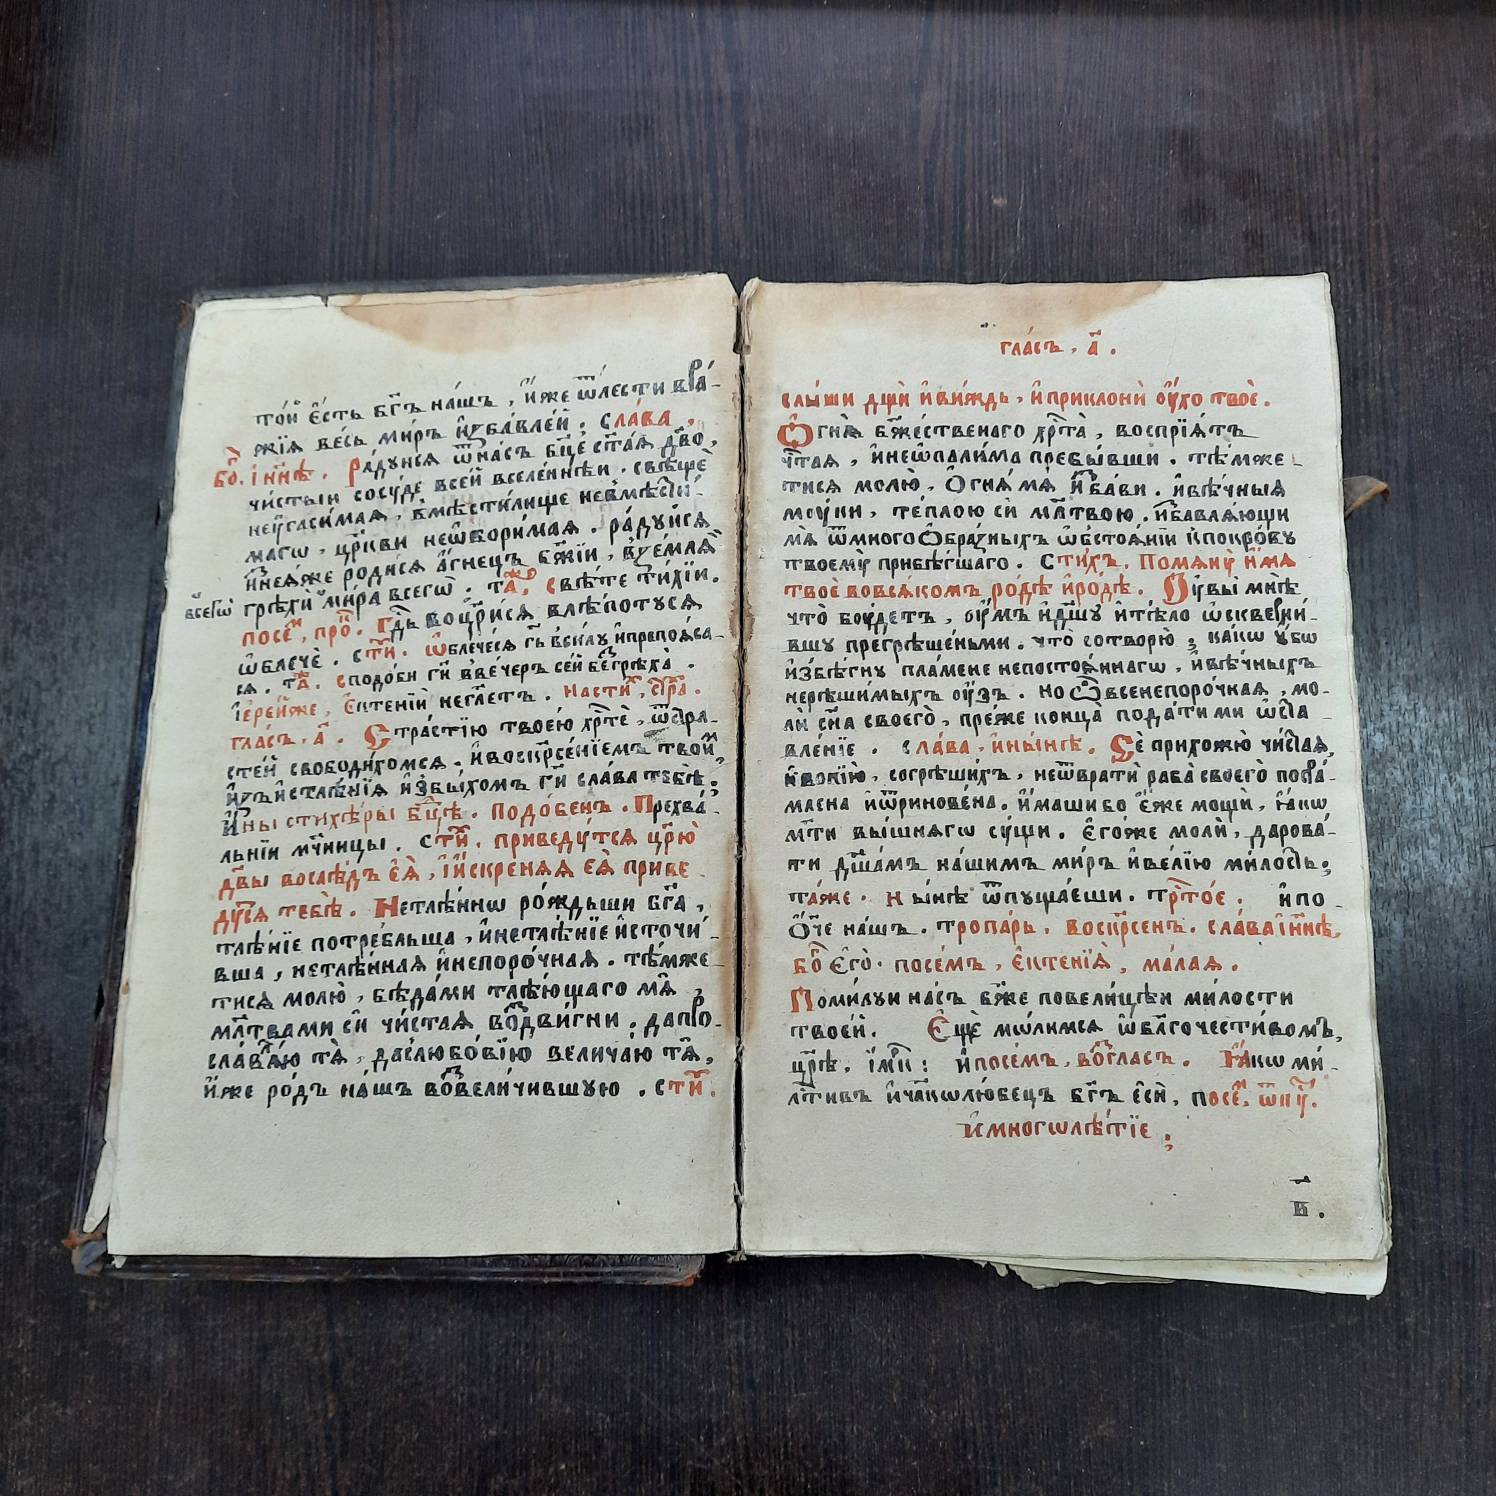 то́й є҆́сть бг҃ъ на́шъ, и҆́же ѿ ле́сти вра́-
жїѧ ве́сь ми́ръ и҆ꙁба́влей. сла́ва,
бо҃. і҆ нн҃ѣ. Ра́дуисѧ ѿ на́съ бц҃е ст҃а́ѧ дв҃о,
чи́стыи сосу́де всей вселе́ннѣи. свѣщѐ
неꙋгаси́маѧ, вмѣсти́лище невмѣсти́-
магѡ, цр҃кви неѡбори́маѧ. ра́дуисѧ
и҆ꙁ неѧ́же роди́сѧ а҆́гнецъ бж҃їи, вꙁе́млѧ
всегѡ̀
грѣхѝ ми́ра всегѡ̀. та҃, свѣ́те ти́хїи.
посе́м, про҃. гдⷭ҇ь воцр҃исѧ влѣ́потусѧ
ѡ҆блечѐ. сти҃. ѡ҆блече́сѧ гдⷭ҇ь в си́лу и҆ препоѧ́са-
сѧ. та҃. сподо́би гд҃и в ве́черъ се́й без грѣха̀.
і҆ере́йже, є҆ктенїй неглⷮетъ. на сти҃, стра҃.
гла́съ, а҃. Стра́стїю твое́ю хрⷭ҇тѐ, ѿ стра-
сте́й свободи́хомсѧ. и҆ воскрⷭ҇се́нїемъ твои́м
и҆ꙁъ и҆стлѣ́нїѧ и҆ꙁбы́хомъ гд҃и сла́ва тебѣ̀;
И҆ны стихѣ́ры бц҃ѣ. подо́бенъ. Прехва́-
льнїи мч҃ницы. сти҃. приведу́тсѧ цр҃ю̀
дв҃ы во слѣ́дъ є҆ѧ̀, и҆ и҆́скренѧѧ єѧ̀ приве-
ду́тсѧ тебѣ̀. Нетлѣ́ннѡ ро́ждьши бг҃а,
тлѣ́нїе потре́бльша, и҆ нетлѣ́нїе и҆сточи́-
вша, нетлѣ́ннаѧ и҆ непоро́чнаѧ. тѣ́мже
тисѧ молю̀, бѣда́ми тлѣ́ющаго мѧ̀,
мл҃твами си чи́стаѧ воꙁдви́гни, да про-
сла́влѧю тѧ̀, да с любо́вїю велича́ю тѧ̀,
и҆́же ро́дъ на́шъ воꙁвели́чившую. сти҃.
гла́съ, а҃.
слы́ши дщ҃и и҆ ви́ждь, и҆ приклонѝ ᲂу҆́хо твоѐ.
Ѻ҆гнѧ̀ бж҃е́ственаго хрⷭ҇та̀, воспрїѧ́тъ
чтⷭ҇аѧ, и҆ неѡпали́ма пребы́вши. тѣ́мже
тисѧ молю̀, ѻ҆гнѧ̀ мѧ и҆ꙁба́ви. и҆ вѣ́чныѧ
мꙋ́ки, те́плою си мл҃твою, и҆ꙁбавлѧ́ющи
мѧ̀ ѿ многоѻ҆бра́ꙁныхъ ѡ҆бстоѧ́нїи к покро́ву
твоемꙋ̀ прибѣ́гшаго. Сти́хъ. Помѧнꙋ̀ и҆́мѧ
твоѐ во всѧ́комъ ро́дѣ и҆ ро́дѣ. Оу҆вы̀ мнѣ̀
что̀ бꙋ́детъ, ᲂу҆́мъ и҆ дш҃у и҆ тѣ́ло ѡ҆скверни́-
вшу прегрѣше́ньми. что̀ сотворю̀; ка́кѡ у҆́бѡ
и҆ꙁбѣ́гну пла́мене непостоѧ́ннагѡ, и҆ вѣ́чныхъ
нерѣши́мыхъ ᲂу҆́ꙁъ. но ѽ всенепоро́чнаѧ, мо-
лѝ сн҃а своего̀, пре́же конца̀ пода́ти ми ѡ҆ста-
вле́нїе. сла́ва, и҆ ны́нѣ. Сѐ прихожю̀ чи́стаѧ,
и҆ вопїю̀, согрѣши́хъ, не ѿвратѝ раба̀ своего̀ посра́-
млена и҆ ѿринове́на. и҆́маши бо є҆́же мощѝ, ꙗ҆́кѡ
мт҃и вы́шнѧгѡ су́щи. є҆го́же молѝ, дарова́-
ти дш҃а́мъ на́шимъ ми́ръ и҆ ве́лїю ми́лость;
та́же. ны́нѣ ѿпуща́еши. трⷭ҇то́е. и҆ по
ѻ҆́ч҃е на́шъ. тропа́рь, воскр҃сенъ. сла́ва і҆ нн҃ѣ,
бо҃ є҆го̀. посе́мъ, є҆ктенїѧ̀, ма́лаѧ.
Поми́луи на́съ бж҃е по вели́цѣи ми́лости
твое́й. Є҆щѐ мо́лимсѧ ѡ҆ блⷢ҇очести́вомъ,
цр҃ѣ. і҆мⷦ҇: и҆ посе́мъ, воꙁгла́съ. Ꙗ҆́кѡ ми́-
лⷭ҇тивъ и҆ чл҃кѡлю́бецъ бг҃ъ є҆сѝ, посе҃, ѿпꙋ́.
и҆ многѡлѣ́тїе;
в҃.